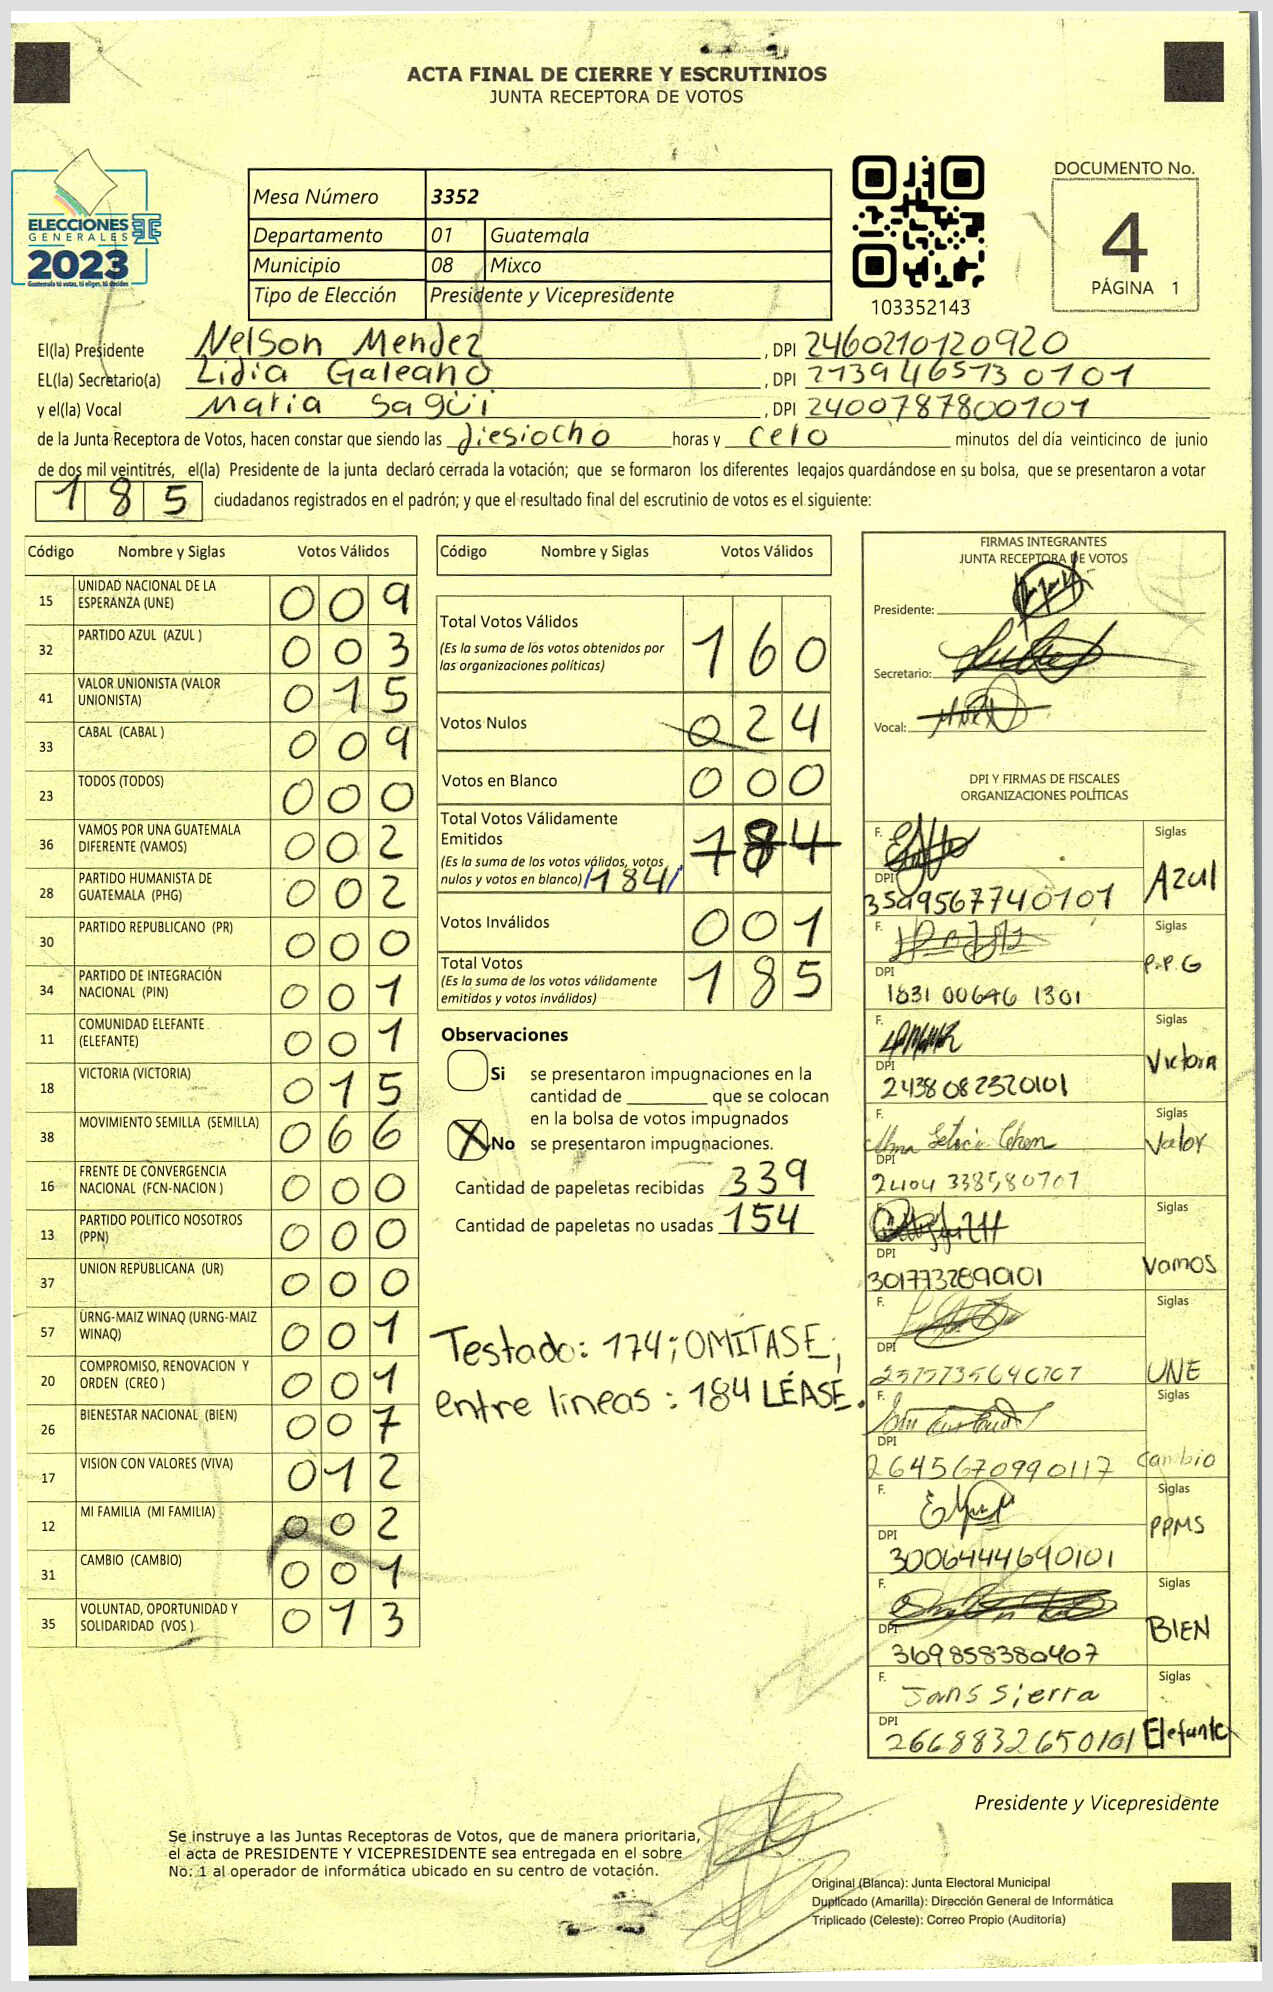 ACTA FINAL DE CIERRE Y ESCRUTINIOS
JUNTA RECEPTORA DE VOTOS
ELECCIONES
GENERALES
2023
Guatemala tú votas, tú eliges, tú decides
Mesa Número 3352
Departamento 01 Guatemala
Municipio 08 Mixco
Tipo de Elección Presidente y Vicepresidente
103352143
DOCUMENTO No.
4
PÁGINA 1
El(la) Presidente Nelson Mendez, DPI 2460210120920
EL(la) Secretario(a) Lidia Galeano, DPI 2139465130101
y el(la) Vocal Maria Sagüi, DPI 2400787800101
de la Junta Receptora de Votos, hacen constar que siendo las diesiocho horas y cero minutos del día veinticinco de junio
de dos mil veintitrés, el(la) Presidente de la junta declaró cerrada la votación; que se formaron los diferentes legajos quardándose en su bolsa, que se presentaron a votar
185 ciudadanos registrados en el padrón; y que el resultado final del escrutinio de votos es el siguiente:
Código Nombre y Siglas Votos Válidos
15 UNIDAD NACIONAL DE LA ESPERANZA (UNE) 009
32 PARTIDO AZUL (AZUL ) 003
41 VALOR UNIONISTA (VALOR UNIONISTA) 015
33 CABAL (CABAL ) 009
23 TODOS (TODOS) 000
36 VAMOS POR UNA GUATEMALA DIFERENTE (VAMOS) 002
28 PARTIDO HUMANISTA DE GUATEMALA (PHG) 002
30 PARTIDO REPUBLICANO (PR) 000
34 PARTIDO DE INTEGRACIÓN NACIONAL (PIN) 001
11 COMUNIDAD ELEFANTE (ELEFANTE) 001
18 VICTORIA (VICTORIA) 015
38 MOVIMIENTO SEMILLA (SEMILLA) 066
16 FRENTE DE CONVERGENCIA NACIONAL (FCN-NACION ) 000
13 PARTIDO POLITICO NOSOTROS (PPN) 000
37 UNION REPUBLICANA (UR) 000
57 URNG-MAIZ WINAQ (URNG-MAIZ WINAQ) 001
20 COMPROMISO, RENOVACION Y ORDEN (CREO ) 001
26 BIENESTAR NACIONAL (BIEN) 007
17 VISION CON VALORES (VIVA) 012
12 MI FAMILIA (MI FAMILIA) 002
31 CAMBIO (CAMBIO) 001
35 VOLUNTAD, OPORTUNIDAD Y SOLIDARIDAD (VOS ) 013
Código Nombre y Siglas Votos Válidos
Total Votos Válidos 160
(Es la suma de los votos obtenidos por
las organizaciones políticas)
Votos Nulos 024
Votos en Blanco 000
Total Votos Válidamente
Emitidos
(Es la suma de los votos válidos, votos
nulos y votos en blanco) /184/
Votos Inválidos 001
Total Votos 185
(Es la suma de los votos válidamente
emitidos y votos inválidos)
Observaciones
Si se presentaron impugnaciones en la
cantidad de ________ que se colocan
en la bolsa de votos impugnados
X No se presentaron impugnaciones.
Cantidad de papeletas recibidas 339
Cantidad de papeletas no usadas 154
Testado: 174; OMITASE;
entre lineas: 184 LÉASE.
FIRMAS INTEGRANTES
JUNTA RECEPTORA DE VOTOS
Presidente:
Secretario:
Vocal:
DPI Y FIRMAS DE FISCALES
ORGANIZACIONES POLÍTICAS
F. Siglas
DPI 3599567740101 Azul
F. Siglas
DPI 1831 00646 1301 P.P.G
F. Siglas
DPI 2438082320101 Victoria
F. Siglas
DPI Valor
F. Siglas
DPI 3017732890101 Vamos
F. Siglas
DPI UNE
F. Siglas
DPI 2645670990117 Cambio
F. Siglas
DPI 3006444690101 PPMS
F. Siglas
DPI 3169858380407 BIEN
F. Jans Sierra Siglas
DPI 2668832650101 Elefante
Presidente y Vicepresidente
Se instruye a las Juntas Receptoras de Votos, que de manera prioritaria,
el acta de PRESIDENTE Y VICEPRESIDENTE sea entregada en el sobre
No. 1 al operador de informática ubicado en su centro de votación.
Original (Blanca): Junta Electoral Municipal
Duplicado (Amarilla): Dirección General de Informática
Triplicado (Celeste): Correo Propio (Auditoría)